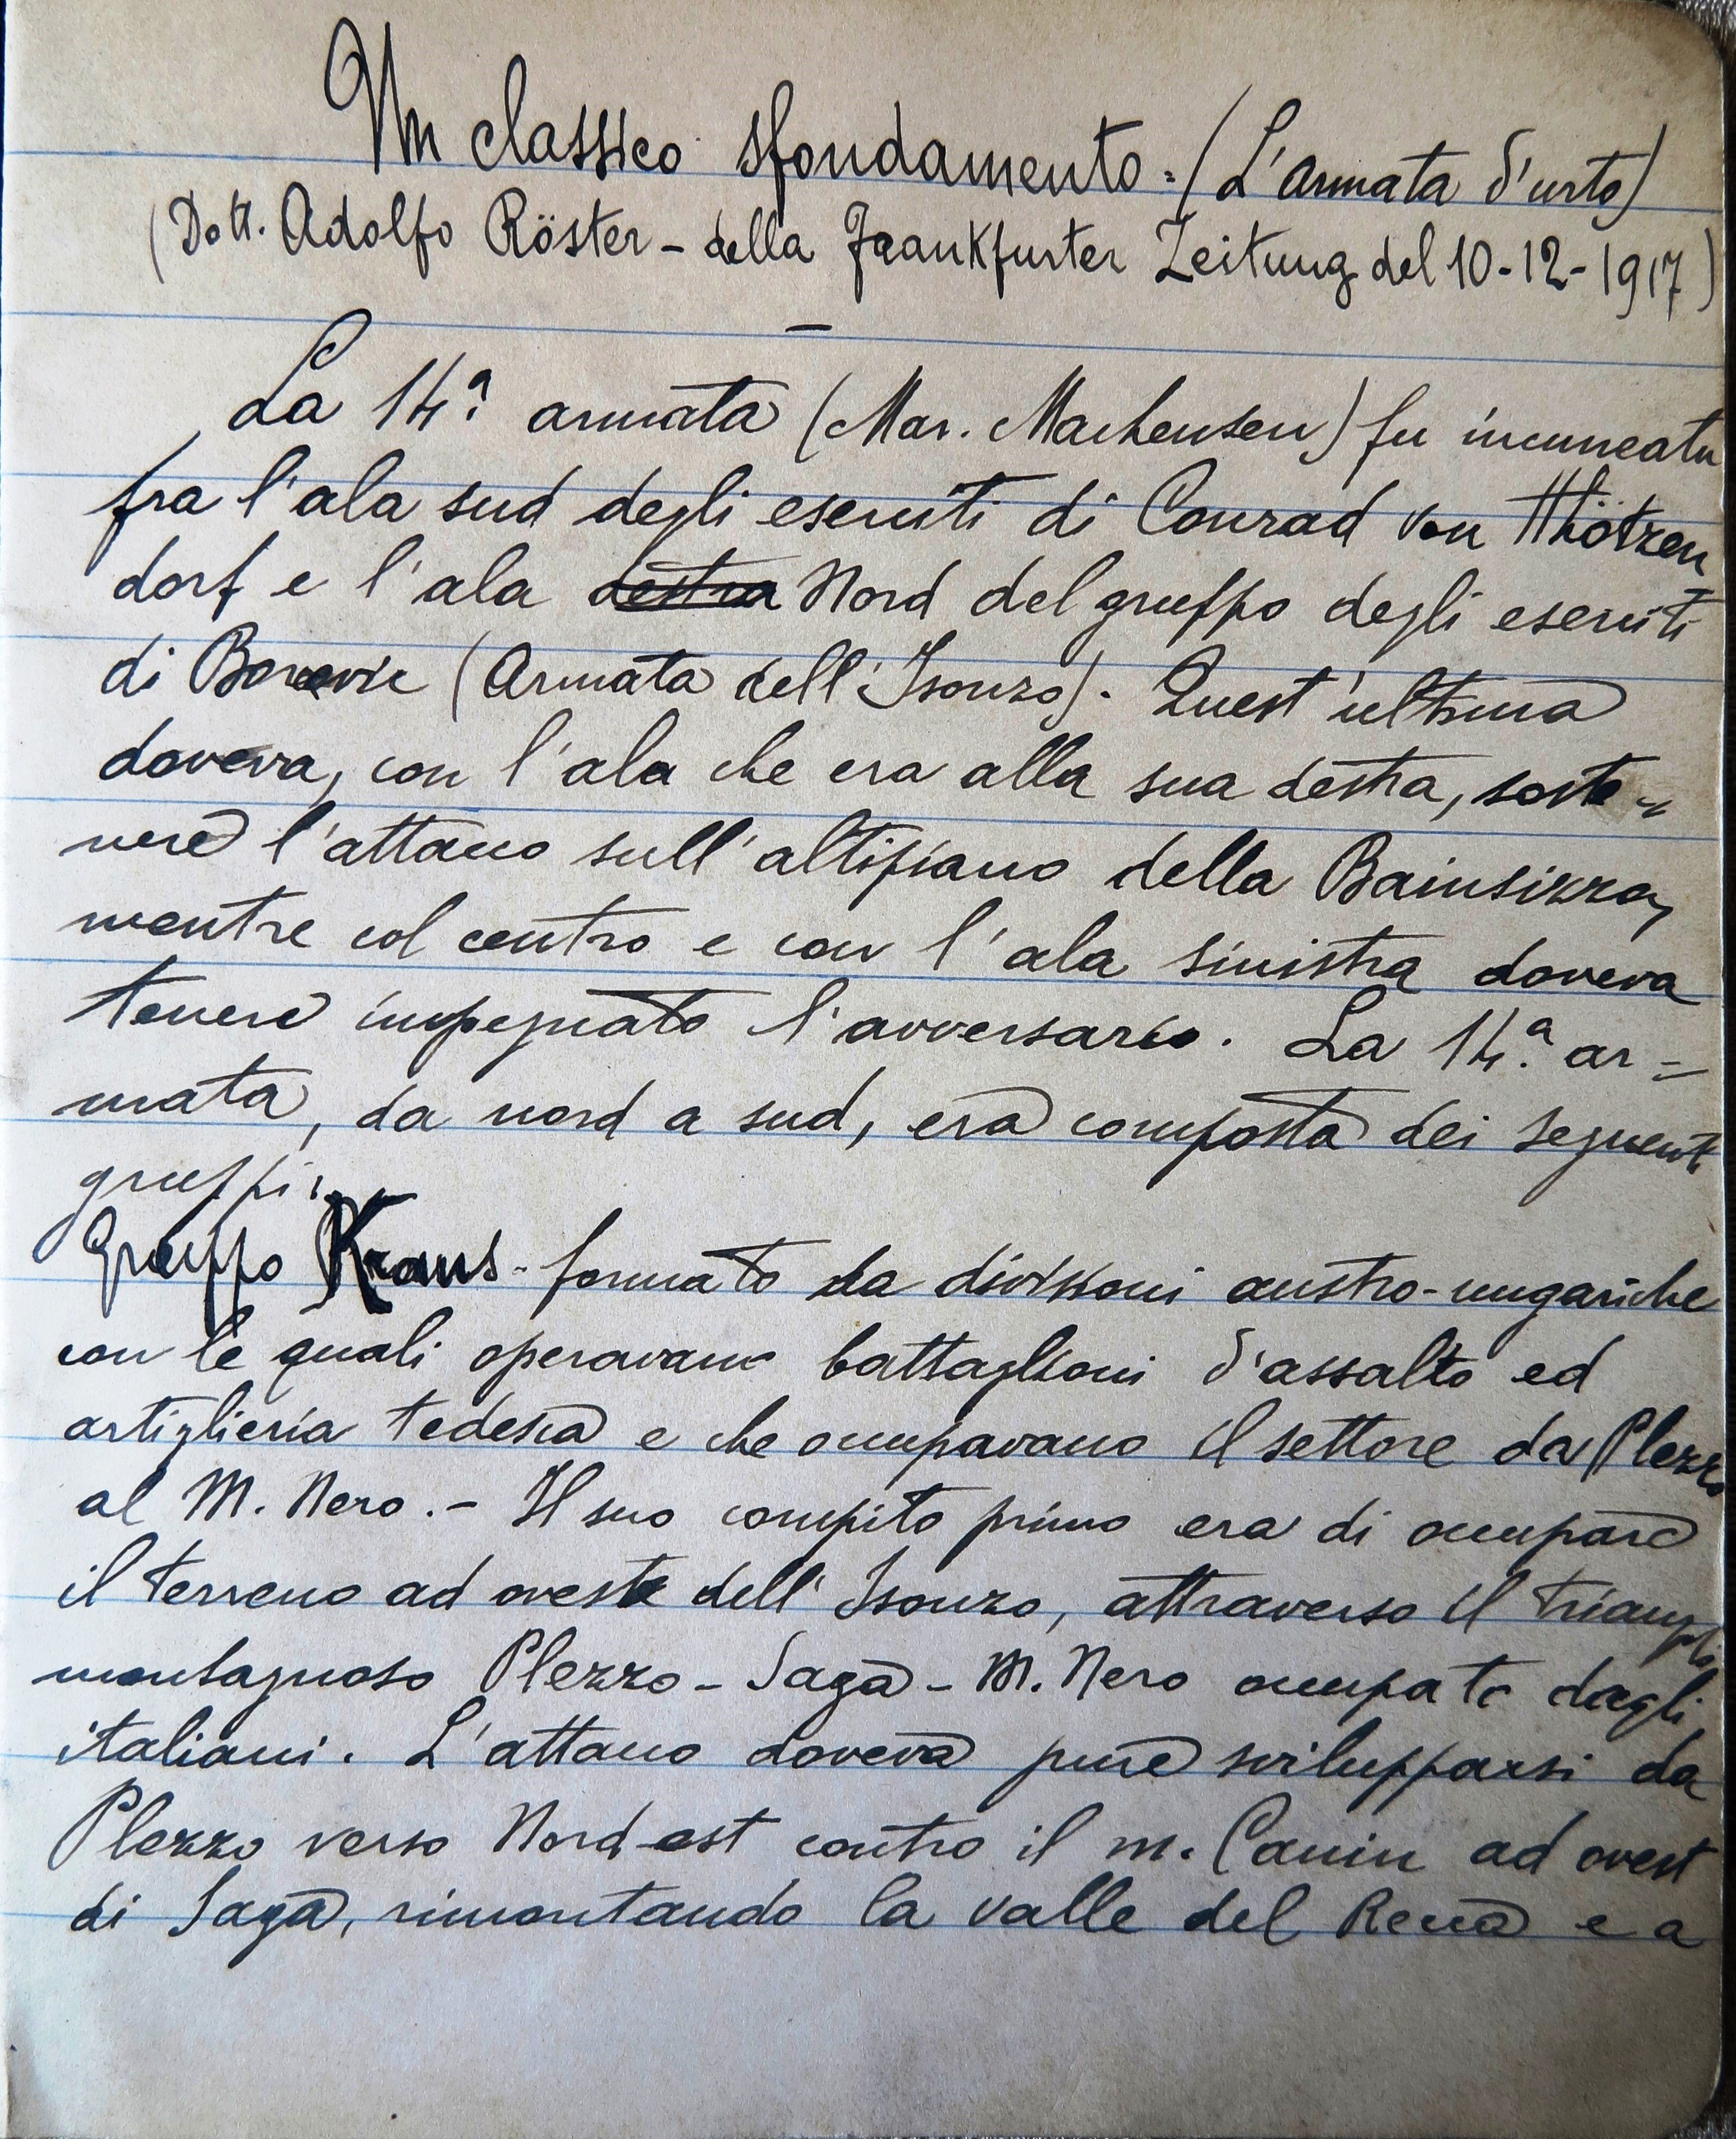 Un classico sfondamento = (L'Armata d'urto)
(Dott. Adolfo Röster - della Frankfurter Zeitung del 10-12-1917)
La 14ª armata (Mar. Mackensen) fu incuneata
fra l'ala sud degli eserciti di Conrad von Hötzen
dorf e l'ala destra Nord del gruppo degli eserciti
di Boroevic (Armata dell'Isonzo). Quest'ultima
doveva, con l'ala che era alla sua destra, soste=
nere l'attacco sull'altipiano della Bainsizza,
mentre col centro e con l'ala sinistra doveva
tenere impegnato l'avversario. La 14ª ar=
mata, da nord a sud, era composta dei seguenti
gruppi:
Gruppo Kraus - formato da divisioni austro-ungariche
con le quali operavano battaglioni d'assalto ed
artiglieria tedesca e che occupavano il settore da Plezzo
al M. Nero. - Il suo compito primo era di occupare
il terreno ad ovest dell'Isonzo, attraverso il triangolo
montagnoso Plezzo - Saga - M. Nero occupato dagli
italiani. L'attacco doveva pure svilupparsi da
Plezzo verso Nord-est contro il m. Canin ad ovest
di Saga, rimontando la valle del e a